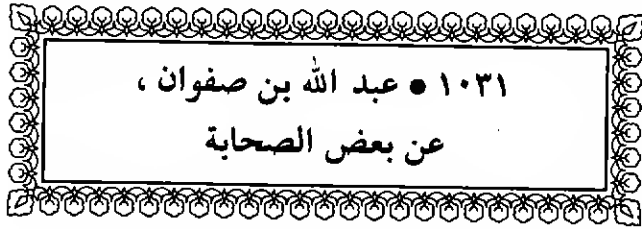 ١٠٣١ • عبد الله بن صفوان ،
عن بعض الصحابة